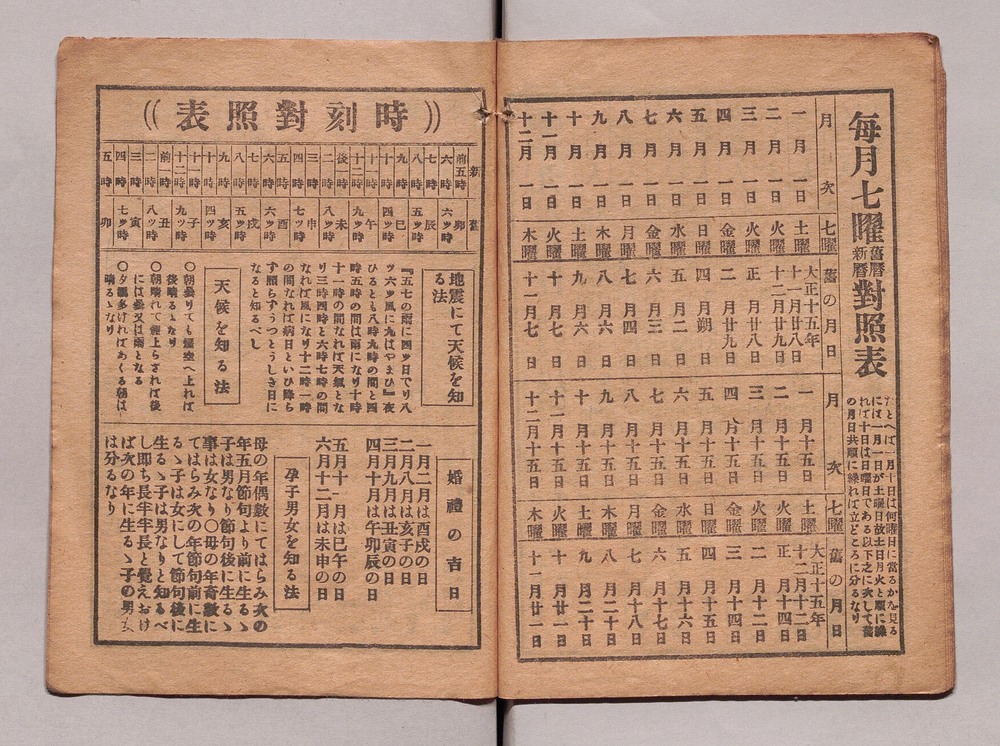 毎月七曜舊暦新暦對照表
たとへば一月十日は何曜日に當るかを見る
には一月一日が土曜日故土日月火と順に繰
れば十日は日曜日である以下之に次して舊
の月日共順に繰れば立どころに分るなり
月次 七曜 舊の月日
一月一日 土曜 大正十五年十一月廿八日
二月一日 火曜 十二月廿九日
三月一日 火曜 正月廿八日
四月一日 金曜 二月廿九日
五月一日 日曜 四月朔日
六月一日 水曜 五月二日
七月一日 金曜 六月三日
八月一日 月曜 七月四日
九月一日 木曜 八月六日
十月一日 土曜 九月六日
十一月一日 火曜 十月八日
十二月一日 木曜 十一月七日
月次 七曜 舊の月日
一月十五日 土曜 大正十五年十二月十二日
二月十五日 火曜 正月十四日
三月十五日 火曜 二月十二日
四月十五日 金曜 三月十四日
五月十五日 日曜 四月十五日
六月十五日 水曜 五月十六日
七月十五日 金曜 六月十七日
八月十五日 月曜 七月十八日
九月十五日 木曜 八月二十日
十月十五日 土曜 九月二十日
十一月十五日 火曜 十月廿一日
十二月十五日 木曜 十一月廿一日
時刻對照表
新 舊
前五時 卯
六時 六ッ時
七時 辰
八時 五ッ時
九時 巳
十時 四ッ時
十一時 午
十二時 九ッ時
後一時 未
二時 八ッ時
三時 申
四時 七ッ時
五時 酉
六時 六ッ時
七時 戌
八時 五ッ時
九時 亥
十時 四ッ時
十一時 子
十二時 九ッ時
前一時 丑
二時 八ッ時
三時 寅
四時 七ッ時
五時 卯
地震にて天候を知る法
『五七の雨に四ッ日でり八
ッ六ッ風に九はやまひ』夜
ひるとも八時九時の間と四
時五時の間は雨になり十時
十一時の間なれば天氣とな
り三時四時と六時七時の間
なれば風になり十二時一時
の間なれば病日といひ降ら
ず照らずうつとうしき日に
なると知るべし
天候を知る法
○朝曇りても煙空へ上れば
後晴るゝなり
○朝晴れて煙上らざれば後
には曇又は雨となる
○夕靄多ければあくる朝は
晴るゝなり
婚禮の吉日
一月二月は酉戌の日
二月八月は亥子の日
三月九月は丑寅の日
四月十月は午卯辰の日
五月十一月は巳午の日
六月十二月は未申の日
孕子男女を知る法
母の年偶數にてはらみ次の
年五月節句より前に生るゝ
子は男なり節句後に生るゝ
事は女なり○母の年奇數に
てはらみ次の年節句前に生
るゝ子は女にして節句後に
生るゝ子は男なりと知るべ
し即ち長半半長と覺えおけ
ば次の年に生るゝ子の男女
は分るなり